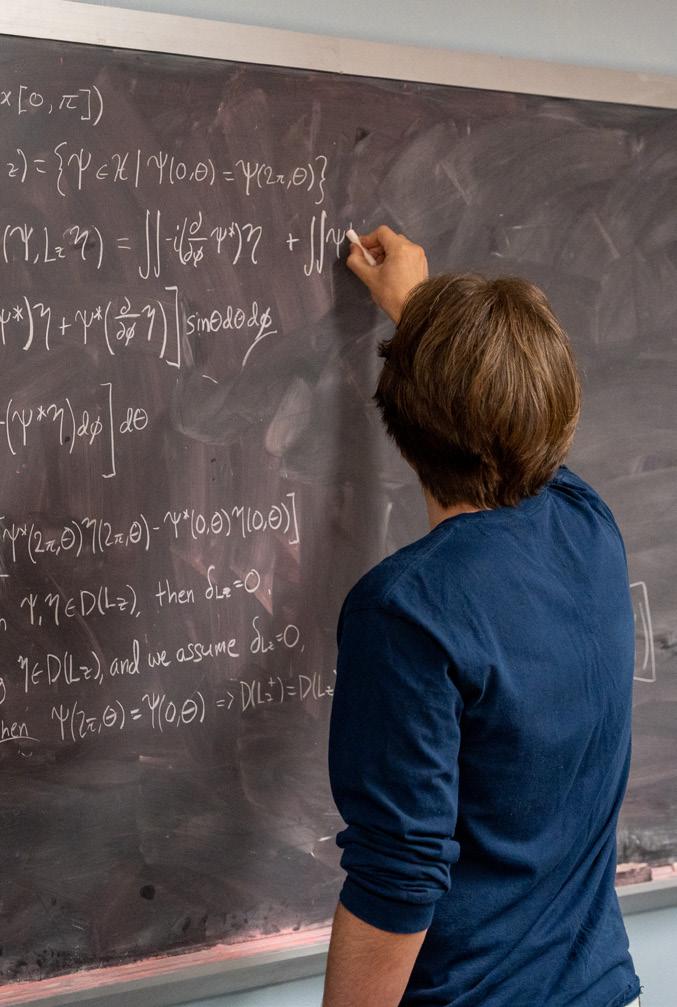 x[0,π])
z) = {Ψ ∈ H | Ψ(0,θ) = Ψ(2π,θ)}
(Ψ, Lz η) = ∬ -i(∂/∂φ Ψ*)η + ∬ Ψ*
Ψ*)η + Ψ*(∂/∂φ η)] sinθdθdφ
(Ψ*η)dφ] dθ
[Ψ*(2π,θ)η(2π,θ) - Ψ*(0,θ)η(0,θ)]
Ψ, η ∈ D(Lz), then δLz = 0,
η ∈ D(Lz), and we assume δLz = 0,
hen Ψ(2π,θ) = Ψ(0,θ) => D(Lz†) = D(Lz